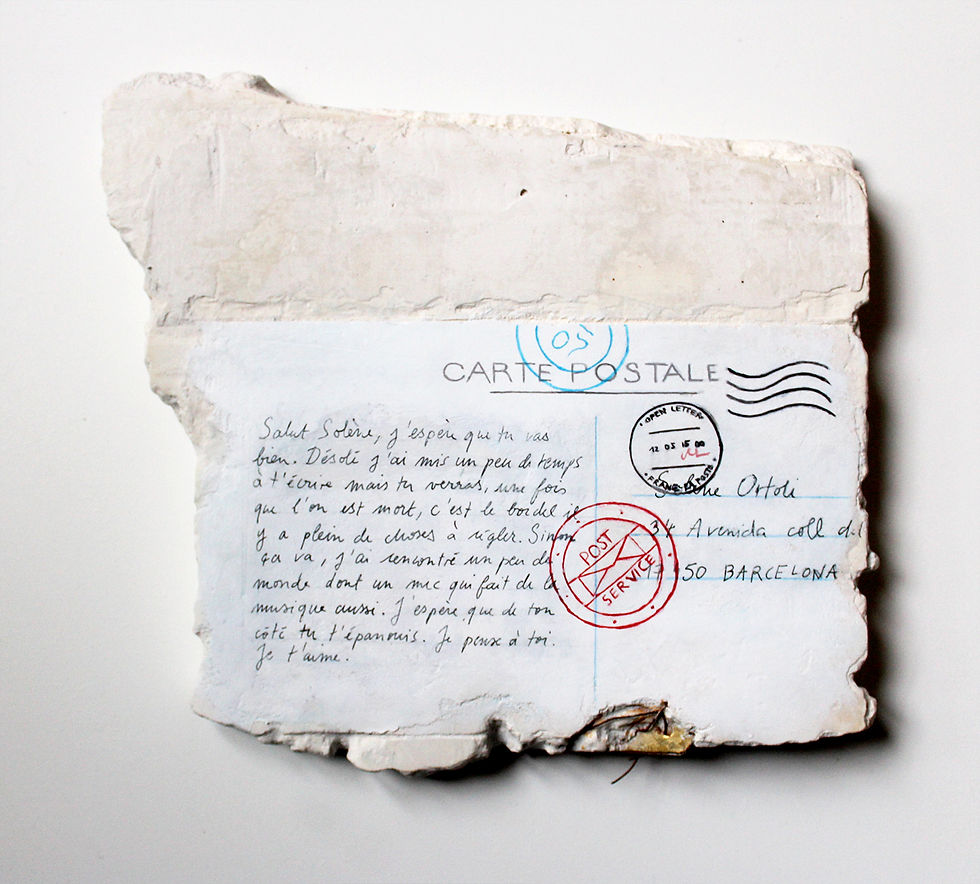 05
CARTE POSTALE
OPEN LETTER
12 05 15 00
FRANCE POSTE
Salut Solène, j'espère que tu vas
bien. Désolé j'ai mis un peu de temps
à t'écrire mais tu verras, une fois
que l'on est mort, c'est le bordel il
y a plein de choses à régler. Sinon
ça va, j'ai rencontré un peu de
monde dont un mec qui fait de la
musique aussi. J'espère que de ton
côté tu t'épanouis. Je pense à toi.
Je t'aime.
Ortoli
34 Avenida coll d
50 BARCELONA
POST
SERVICE